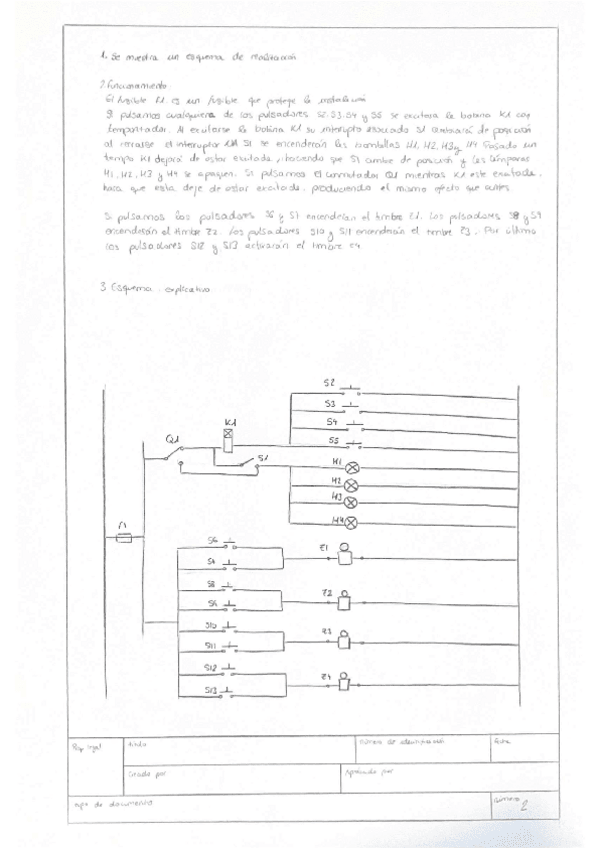 1. Se muestra un esquema de realización
2. Funcionamiento:
El fusible F1 es un fusible que protege la instalación
Si pulsamos cualquiera de los pulsadores S2, S3, S4 y S5 se excitara la bobina K1 con
temporizador. Al excitarse la bobina K1 su interruptor asociado S1 cambiará de posición
al cerrarse el interruptor S1 se encenderán las bombillas H1, H2, H3 y H4 Pasado un
tiempo K1 dejará de estar excitada, haciendo que S1 cambie de posición y las lámparas
H1, H2, H3 y H4 se apaguen. Si pulsamos el conmutador Q1 mientras K1 este excitada,
hara que esta deje de estar excitada, produciendo el mismo efecto que antes.
Si pulsamos los pulsadores S6 y S7 encenderían el timbre Z1. Los pulsadores S8 y S9
encenderían el timbre Z2. Los pulsadores S10 y S11 encenderían el timbre Z3. Por último
los pulsadores S12 y S13 activarán el timbre Z4
3. Esquema explicativo
S2
S3
K1
S4
Q1
S5
S1
H1
H2
H3
F1
H4
S6
Z1
S8
Z2
S10
Z3
S11
S12
Z4
S13
título
número de identificación
fecha
creado por
Aprobado por
tipo de documento
número
2